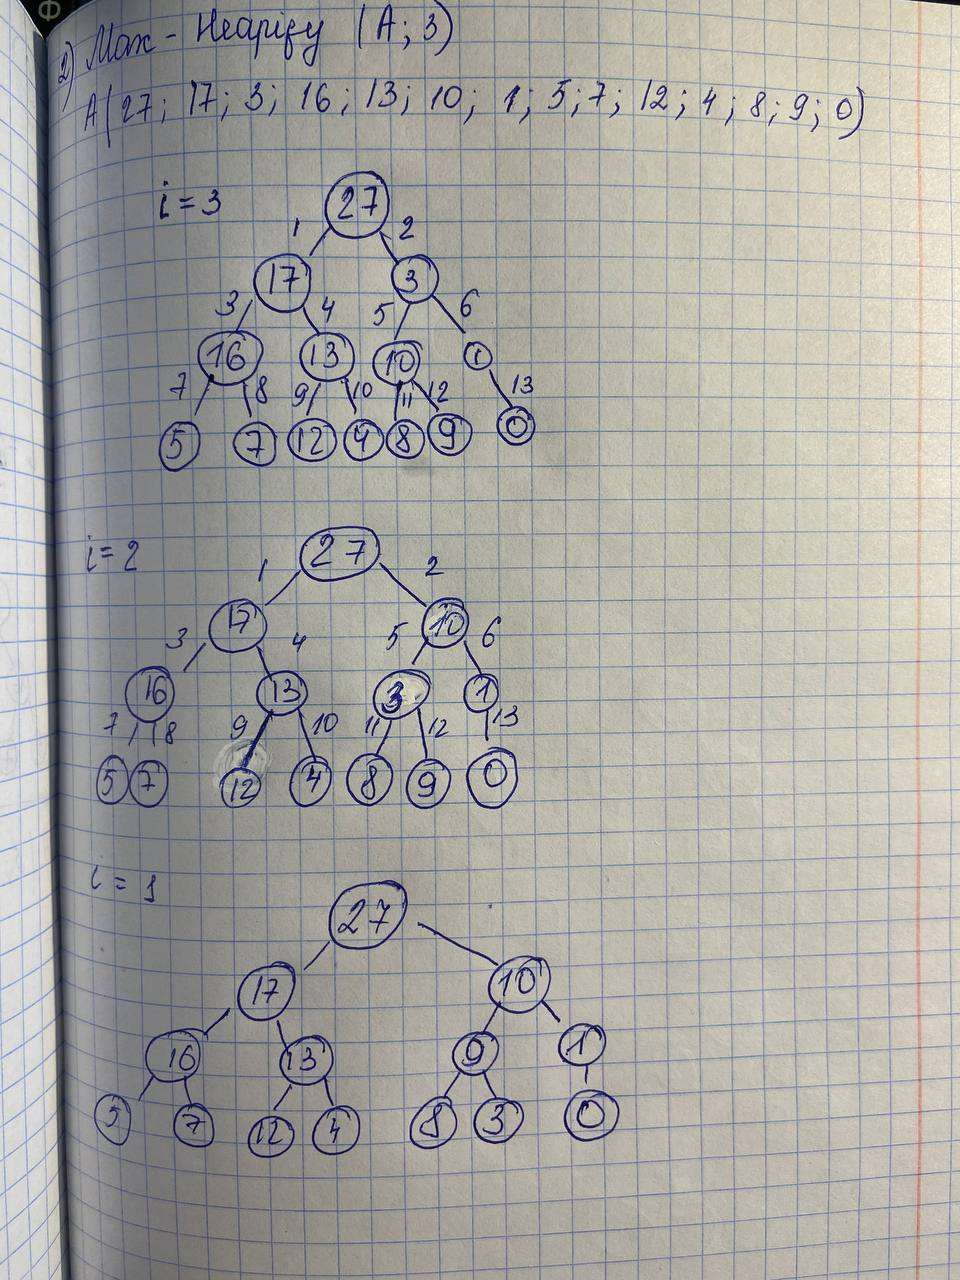 2) Max - Heapify (A; 3)
A(27; 17; 3; 16; 13; 10; 1; 5; 7; 12; 4; 8; 9; 0)
i = 3
27
1 2
17 3
3 4 5 6
16 13 10 1
7 8 9 10 11 12 13
5 7 12 4 8 9 0
i = 2
27
1 2
17 10
3 4 5 6
16 13 3 1
7 8 9 10 11 12 13
5 7 12 4 8 9 0
i = 1
27
17 10
16 13 9 1
5 7 12 4 8 3 0